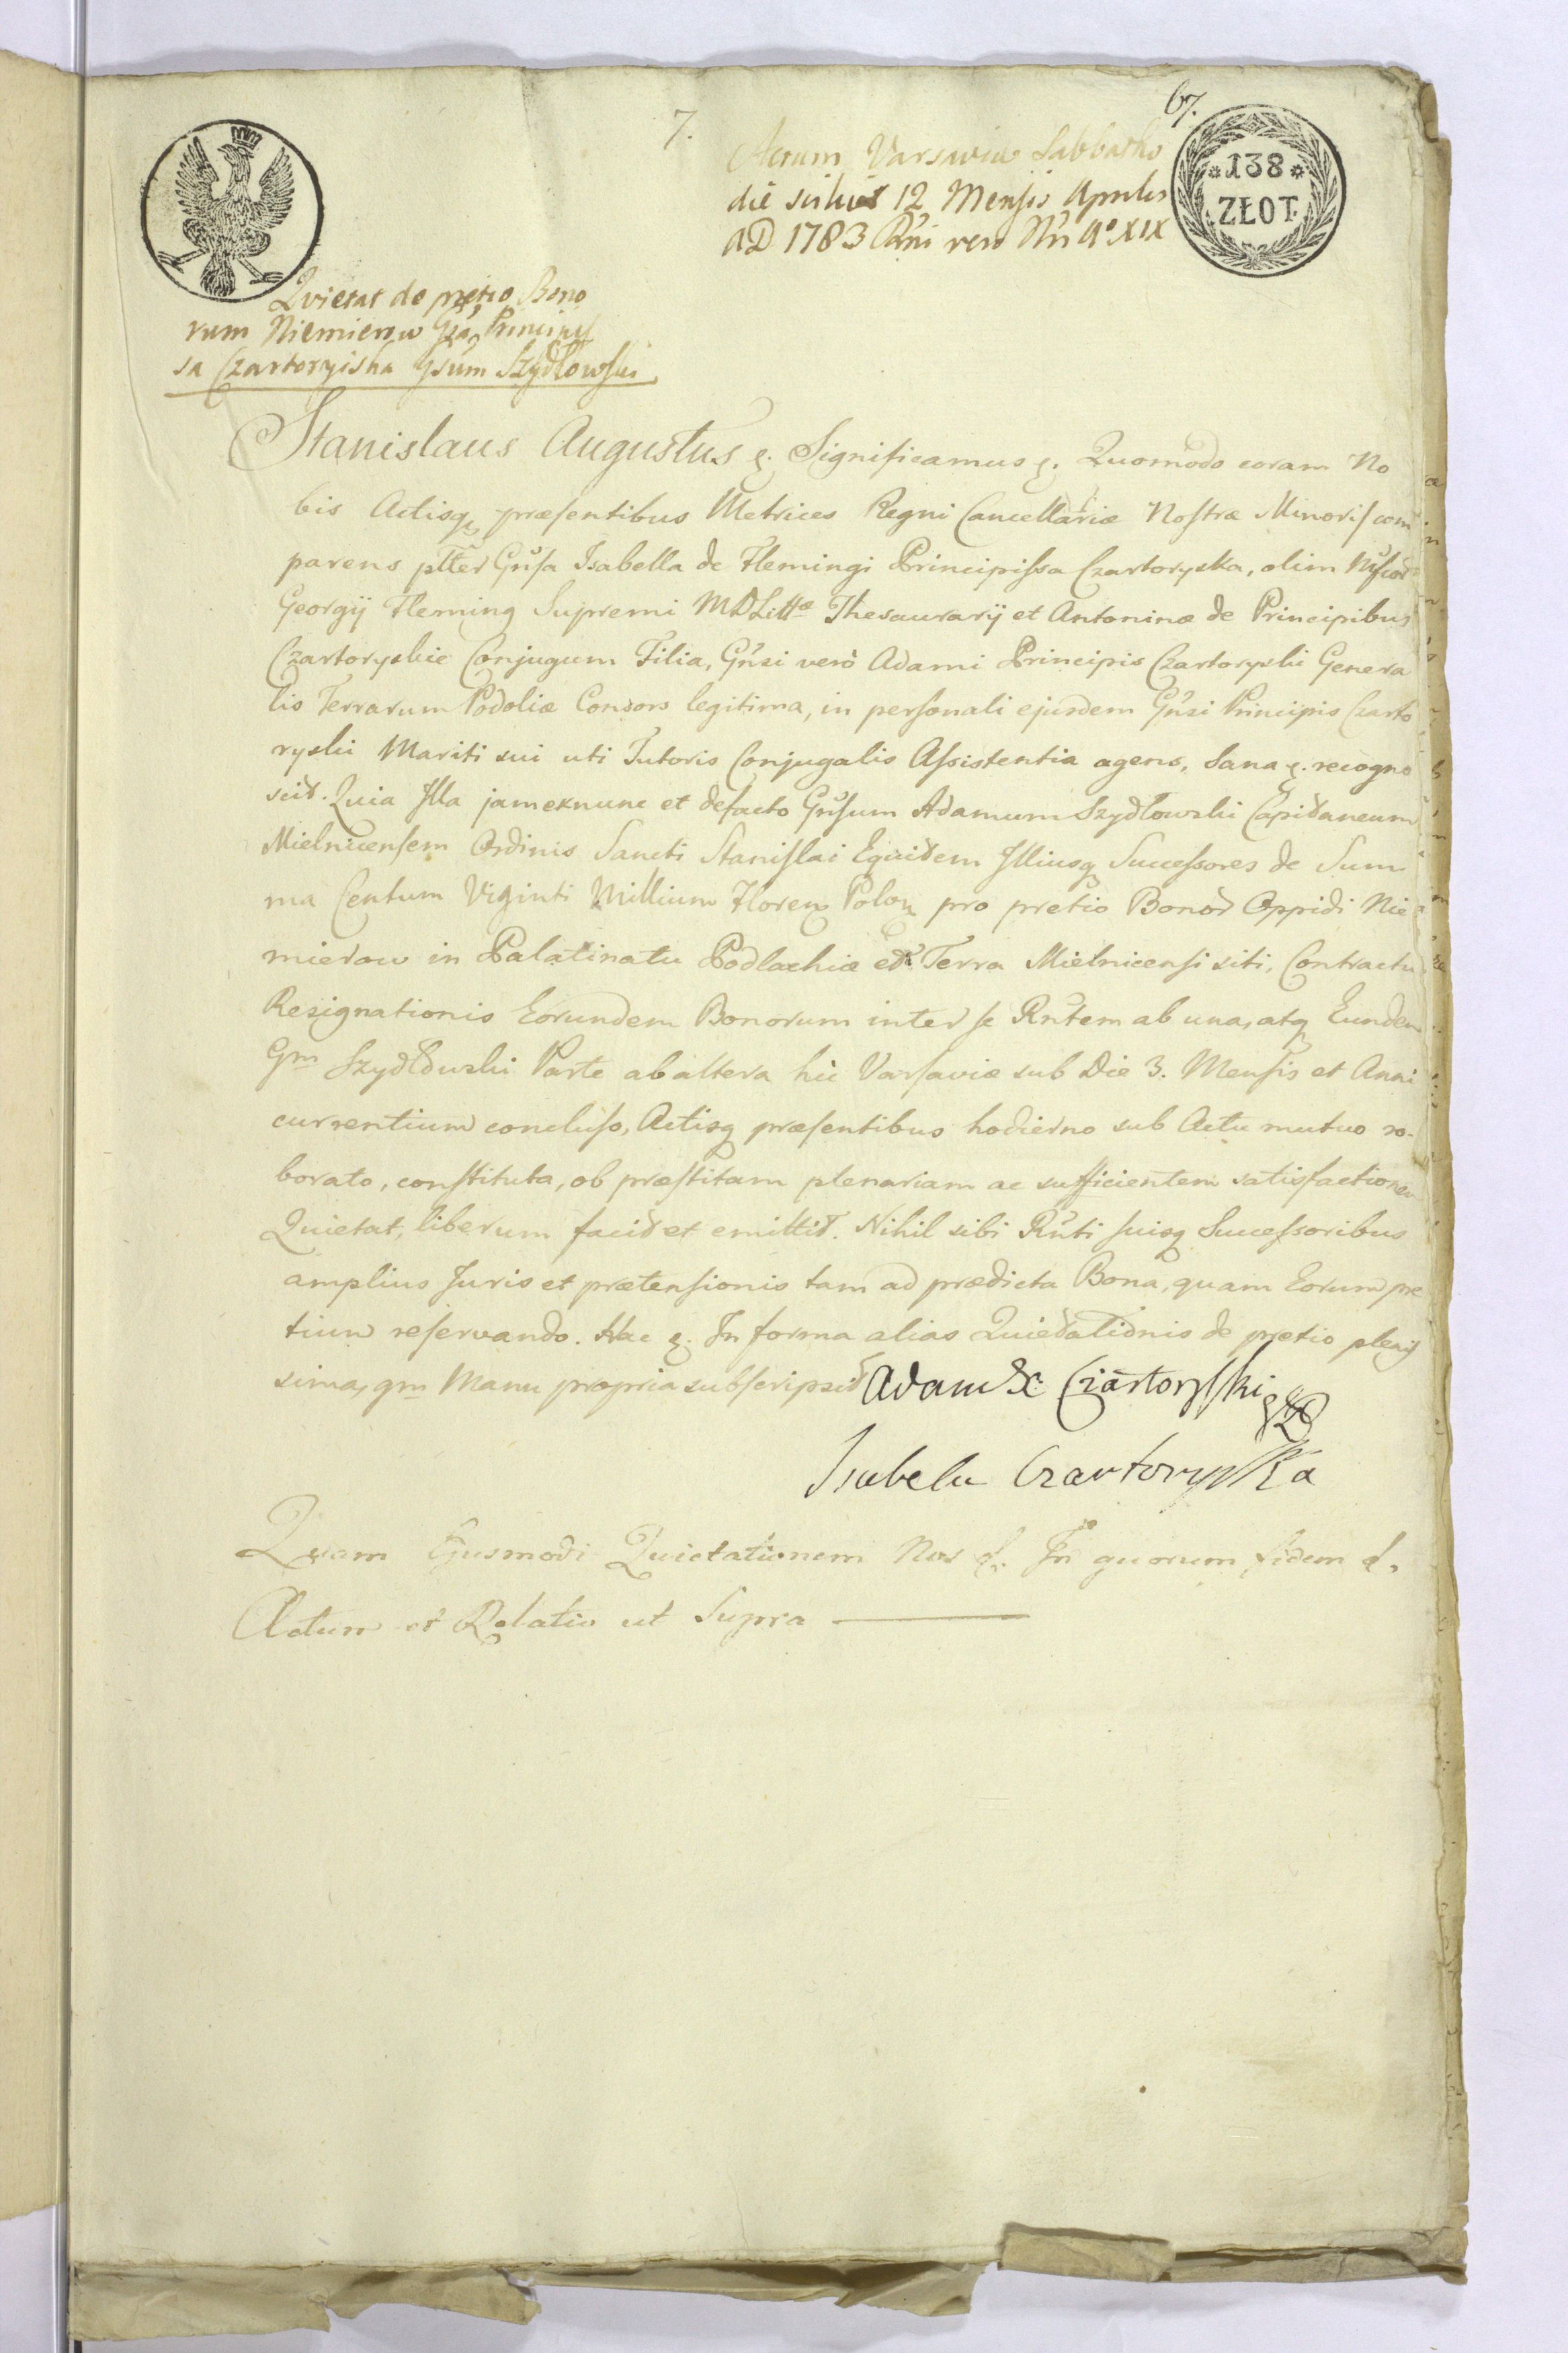 67.
7.
Actum Varsaviæ Sabbatho
die scilicet 12 Mensis Aprilis
AD 1783 Rñi vero Nri Aº XIX
*138*
ZŁOT.
Quietat de prætio Bono
rum Niemierow Gsa Principis
sa Czartoryiska Gsum Szydłowski
Stanislaus Augustus &. Significamus &. Quomodo coram No
bis Actisq præsentibus Metrices Regni Cancellariæ Nostræ Minoris com
parens plter Gnsa Isabella de Flemingi Principissa Czartoryska, olim
Georgij Fleming Supremi MDLittæ Thesaurarij et Antoninæ de Principibus
Czartoryskie Conjugum Filia, Gnsi verò Adami Principis Czartoryski Genera
lis Terrarum Podoliæ Consors legitima, in personali ejusdem Gnsi Principis Czarto
ryski Mariti sui uti Tutoris Conjugalis Assistentia agens, Sana &. recogno
scit. Quia Illa jam exnunc et defacto Gnsum Adamum Szydłowski Capitaneum
Mielnicensem Ordinis Sancti Stanislai Equitem Illiusq Successores de Sum
ma Centum Viginti Millium Floren Polon pro pretio Bonor Oppidi Nie
mierow in Palatinatu Podlachiæ et Terra Mielnicensi siti, Contractu
Resignationis Eorundem Bonorum inter se Rntem ab una, atq Eundem
Gm Szydłowski Parte ab altera hic Varsaviæ sub Die 3. Mensis et Anni
currentium concluso, Actisq præsentibus hodierno sub Actu mutuo ro-
borato, constituta, ob præstitam plenariam ac sufficientem satisfactionem
Quietat, liberum facit et emittit. Nihil sibi Rnti suisq Successoribus
amplius Juris et prætensionis tam ad prædicta Bona, quam Eorum pre
tium reservando. Hac &. In forma alias Quietationis de pretio plenis
sima, qm Manu propria subscripsit Adam X Czartoryski
Isabela Czartoryska
Quam Ejusmodi Quietationem Nos &. In quorum fidem &.
Actum et Relatio ut Supra